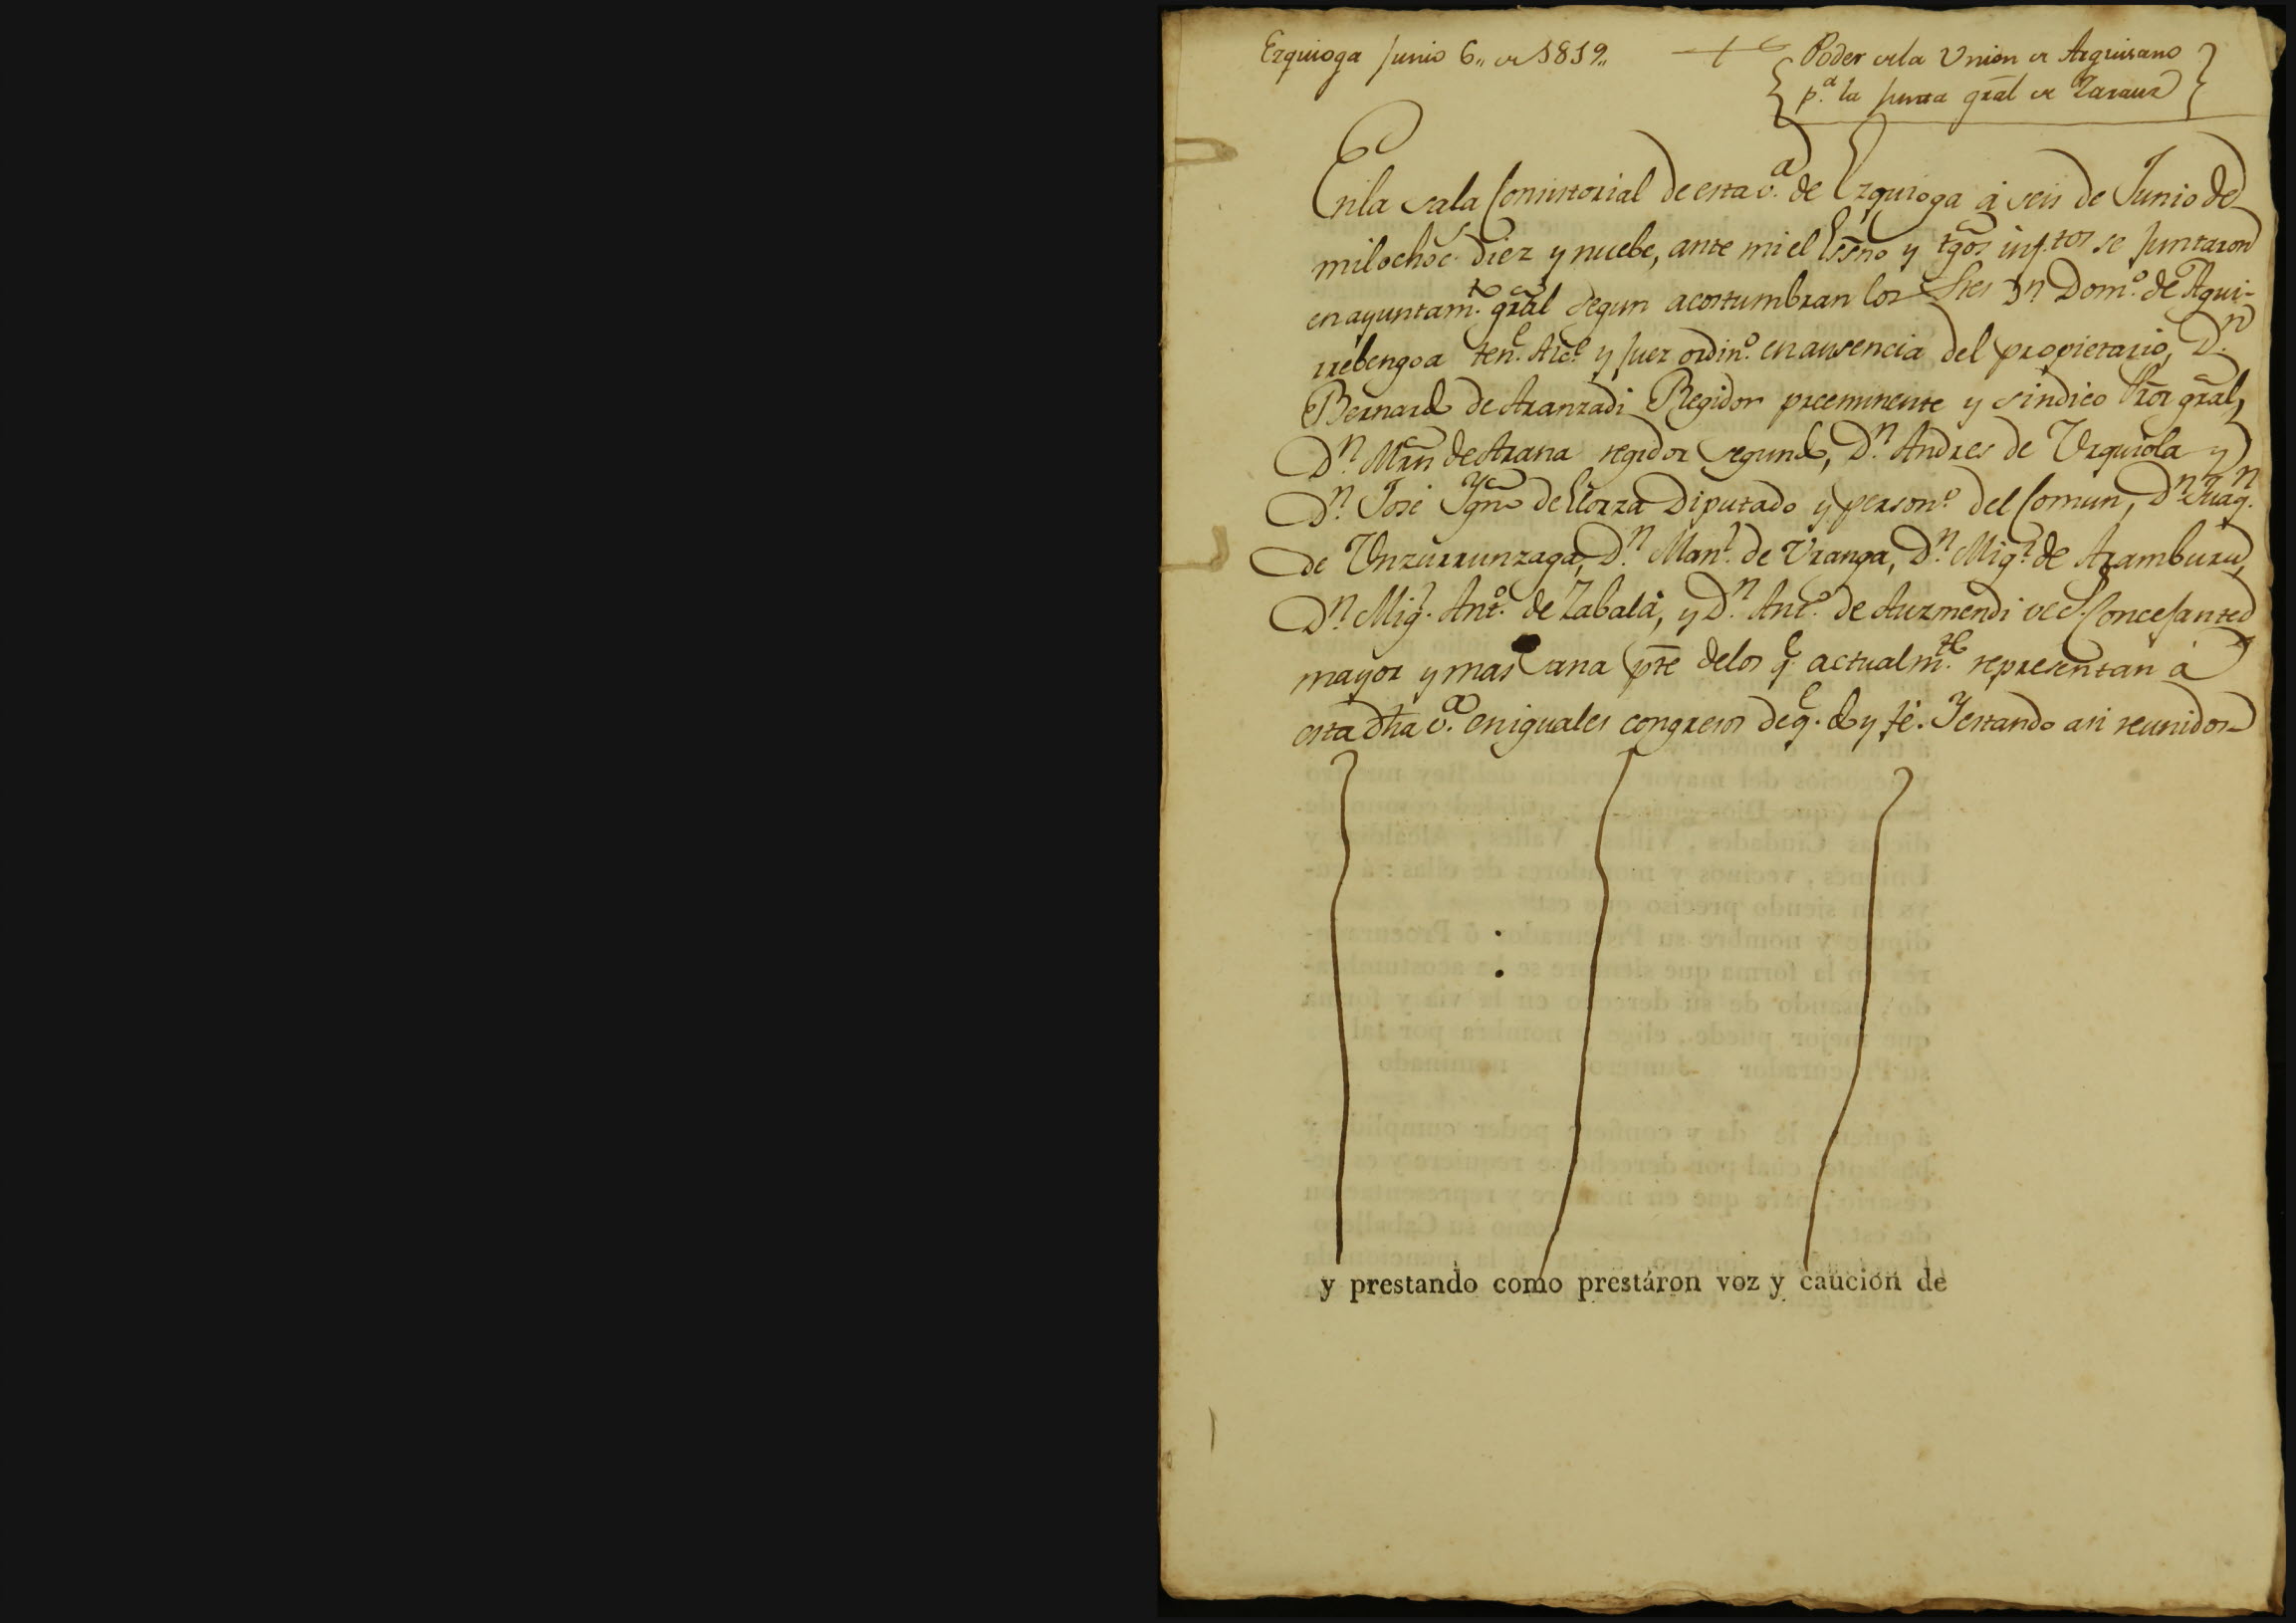 Ezquioga Junio 6,, de 1819,,
Poder dela Union de Arguisano
p.ª la Junta grãl de Zarauz
Enla sala Consistorial de esta v.ª de Ezquioga à seis de Junio de
mil ochoc.s diez y nuebe, ante mi el Essño y tgõs inf.tos se Juntaron
en ayuntam.to grãl segun acostumbran los Sres Dn Dom.º de Agui-
rrebengoa ten.e Alc.e y Juez ordin.º en ausencia del propietario, D.n
Bernardo de Aranzadi Regidor preeminente y sindico Prõr grãl,
D.n Mrñ de Arana regidor segundo, D.n Andres de Urquiola y
D.n José Ygnº de Elorza Diputado y person.º del Comun, D.n Juaq.n
de Unzurrunzaga, D.n Man.l de Uranga, D.n Mig.l de Aramburu,
D.n Mig.l Ant.º de Zabala, y D.n Ant.º de Auzmendi Concejantes
mayor y mas sana pte delos q.e actualm.te representan à
esta dha v.ª en iguales congresos de q.e doy fé. Y estando asi reunidos
y prestando como prestáron voz y caucion de